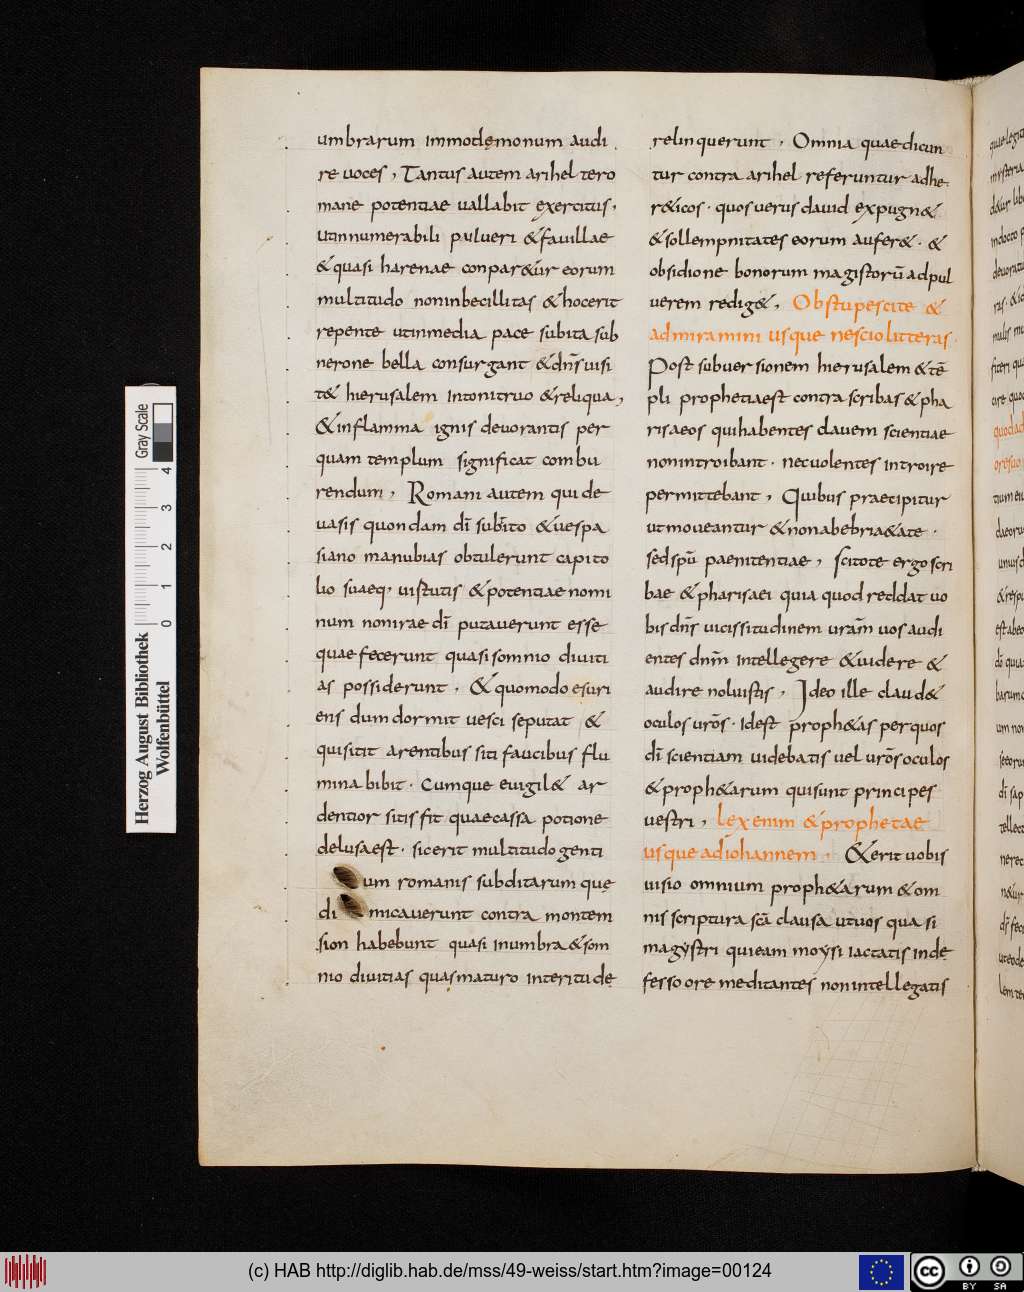 umbrarum immodęmonum audi
re uoces, Tantus autem arihel tero
mane potentiae uallabit exercitus,
utinnumerabili pulueri &fauillae
&quasi harenae conpar&ur eorum
multitudo noninbecillitas &hocerit
repente utinmedia pace subita sub
nerone bella consurgant &dn̄s uisi
t& hierusalem intonitruo &reliqua,
&inflamma ignis deuorantis per
quam templum significat combu
rendum, Romani autem qui de
uasis quondam dī subito &uespa
siano manubias obtulerunt capito
lio suaeq, uirtutis &potentiae nomi
num nonirae dī putauerunt esse
quae fecerunt quasi somnio diuiti
as possiderunt, &quomodo esuri
ens dum dormit uesci se putat &
qui sitit arentibus siti faucibus flu
mina bibit. Cumque euigil& ar
dentior sitis fit quae cassa potione
delusa est. sic erit multitudo genti
um romanis subditarum que
di micauerunt contra montem
sion habebunt quasi inumbra &som
nio diuitias quas maturo interitu de
relinquerunt, Omnia quae dicun
tur contra arihel referuntur adhe
r&icos. quos uerus dauid expugn&
&sollempnitates eorum aufer&. &
obsidione bonorum magistorū ad pul
uerem redig&, Obstupescite &
admiramini usque nescio litteras.
Post subuersionem hierusalem &tē
pli prophetia est contra scribas &pha
risaeos qui habentes clauem scientiae
non introibant. nec uolentes introire
permittebant, Quibus praecipitur
ut moueantur &non ab ebria&ate.
sed spū paenitentiae, scitote ergo scri
bae &pharisaei quia quod reddat uo
bis dn̄s uicissitudinem uram̄ uos audi
entes dnm̄ intellegere &uidere &
audire noluistis, Ideo ille claud&
oculos uros̄. idest proph&as per quos
dī scientiam uidebatis uel uros̄ oculos
&proph&arum qui sunt principes
uestri, lex enim &prophetae
usque ad iohannem. &erit uobis
uisio omnium proph&arum &om
nis scriptura scā clausa ut uos qua si
magystri quieam moysi iactatis inde
fesso ore meditantes non intellegatis
Gray Scale
0 1 2 3 4
Herzog August Bibliothek
Wolfenbüttel
(c) HAB http://diglib.hab.de/mss/49-weiss/start.htm?image=00124
cc BY SA